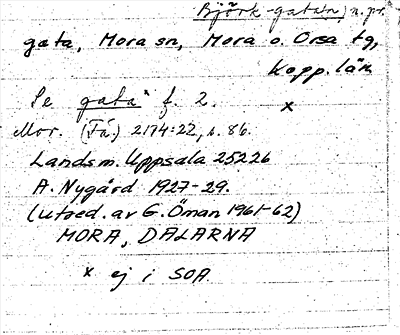 Björk-gatan, n. pr.
gata, Mora sn, Mora o. Orsa tg,
Kopp. län
Se gata f. 2. x
Mor. (Få.) 2174:22, s. 86.
Landsm. Uppsala 25226
A. Nygård 1927-29.
(utsed. av G. Öman 1961-62)
MORA, DALARNA
x ej i SOA